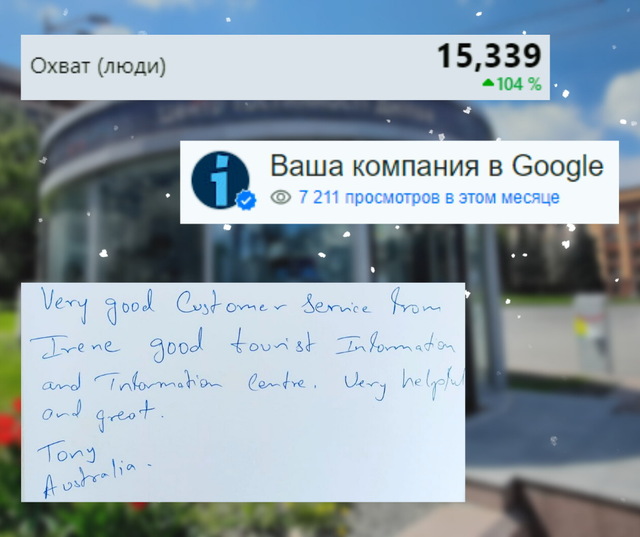 Охват (люди)
15,339
104 %
Ваша компания в Google
7 211 просмотров в этом месяце
Very good Customer Service from
Irene good tourist Information
and Information Centre. Very helpful
and great.
Tony
Australia.